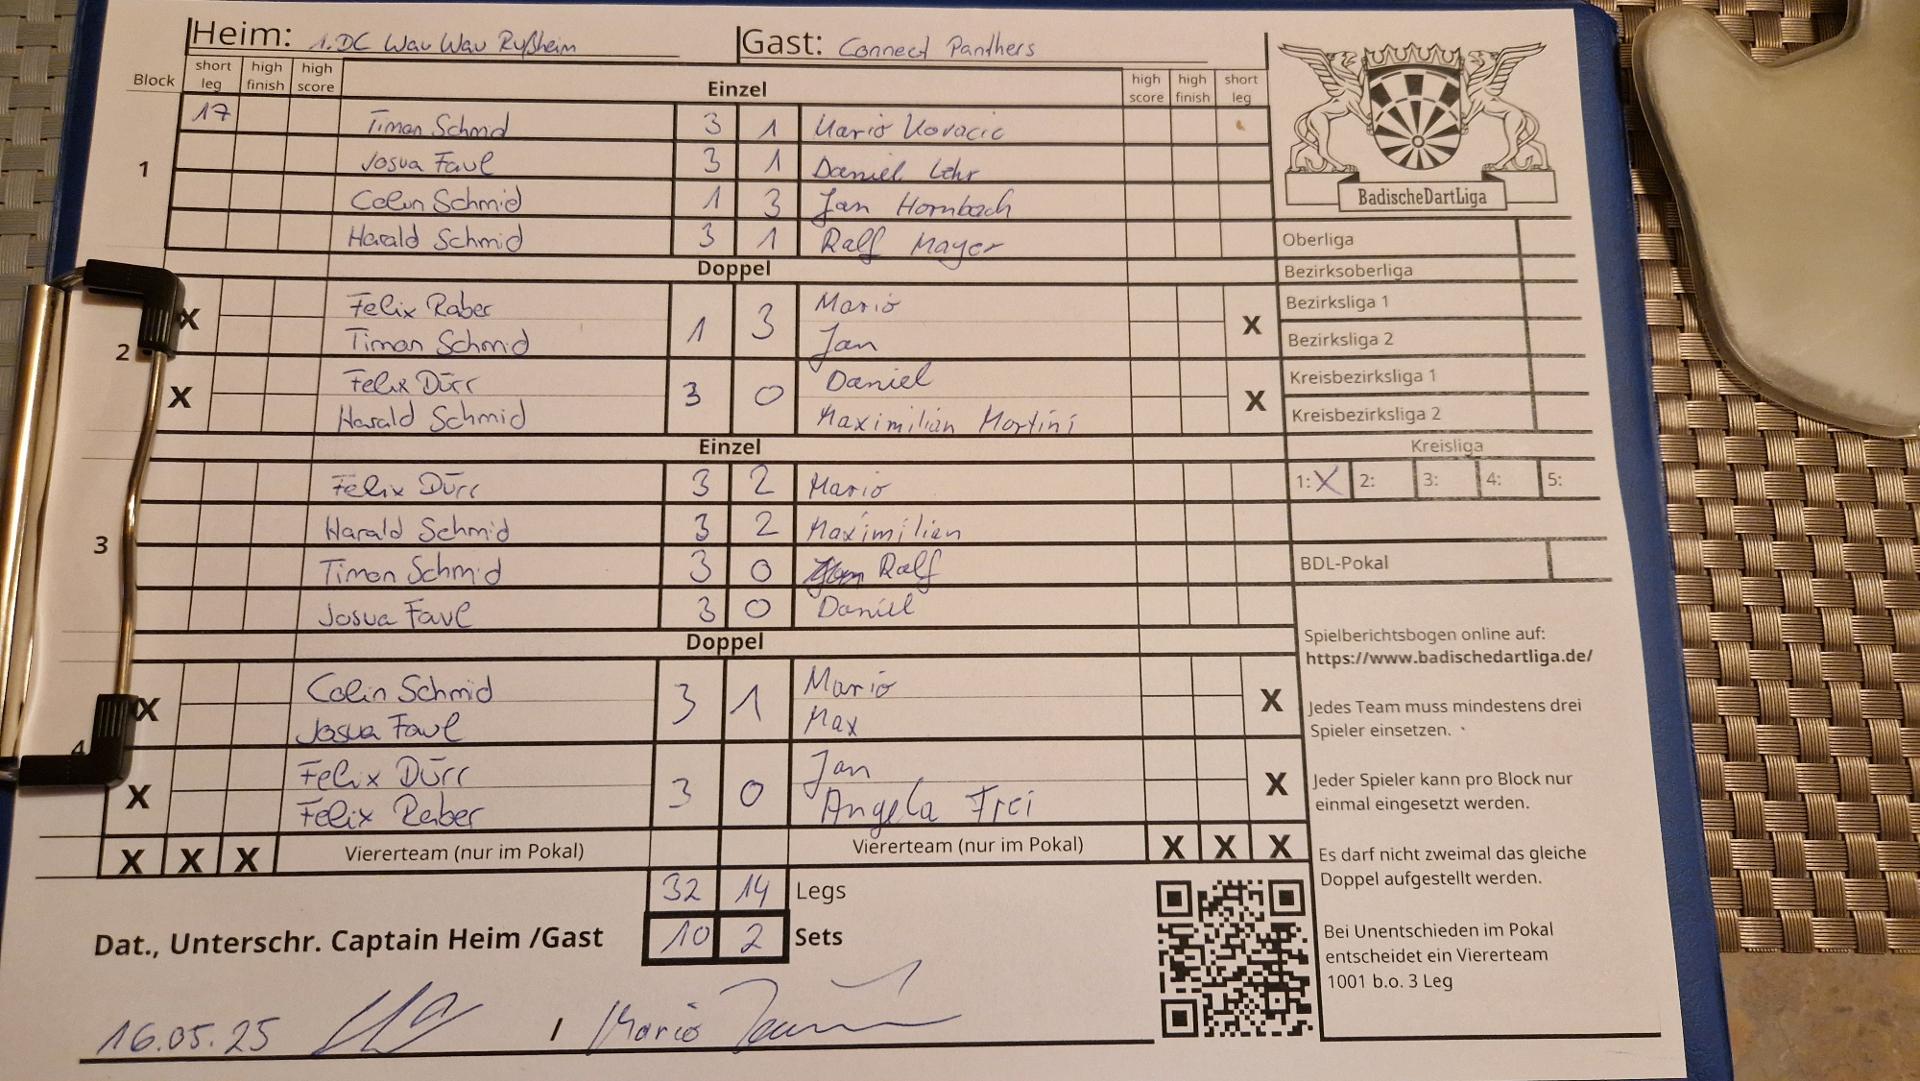 Heim: 1. DC Wau Wau Rußheim Gast: Connect Panthers
Block short leg high finish high score Einzel high score high finish short leg
1
17 Timon Schmid 3 1 Mario Kovacic
Josua Faul 3 1 Daniel Lehr
Colin Schmid 1 3 Jan Hornbach
Harald Schmid 3 1 Ralf Mayer
Doppel
2
X Felix Raber 1 3 Mario X
Timon Schmid Jan
X Felix Dürr 3 0 Daniel X
Harald Schmid Maximilian Martini
Einzel
3
Felix Dürr 3 2 Mario
Harald Schmid 3 2 Maximilian
Timon Schmid 3 0 Ralf
Josua Faul 3 0 Daniel
Doppel
4
X Colin Schmid 3 1 Mario X
Josua Faul Max
X Felix Dürr 3 0 Jan X
Felix Raber Angela Frei
X X X Viererteam (nur im Pokal) Viererteam (nur im Pokal) X X X
32 14 Legs
Dat., Unterschr. Captain Heim /Gast 10 2 Sets
16.05.25 / Mario
BadischeDartLiga
Oberliga
Bezirksoberliga
Bezirksliga 1
Bezirksliga 2
Kreisbezirksliga 1
Kreisbezirksliga 2
Kreisliga
1: X 2: 3: 4: 5:
BDL-Pokal
Spielberichtsbogen online auf:
https://www.badischedartliga.de/
Jedes Team muss mindestens drei
Spieler einsetzen.
Jeder Spieler kann pro Block nur
einmal eingesetzt werden.
Es darf nicht zweimal das gleiche
Doppel aufgestellt werden.
Bei Unentschieden im Pokal
entscheidet ein Viererteam
1001 b.o. 3 Leg